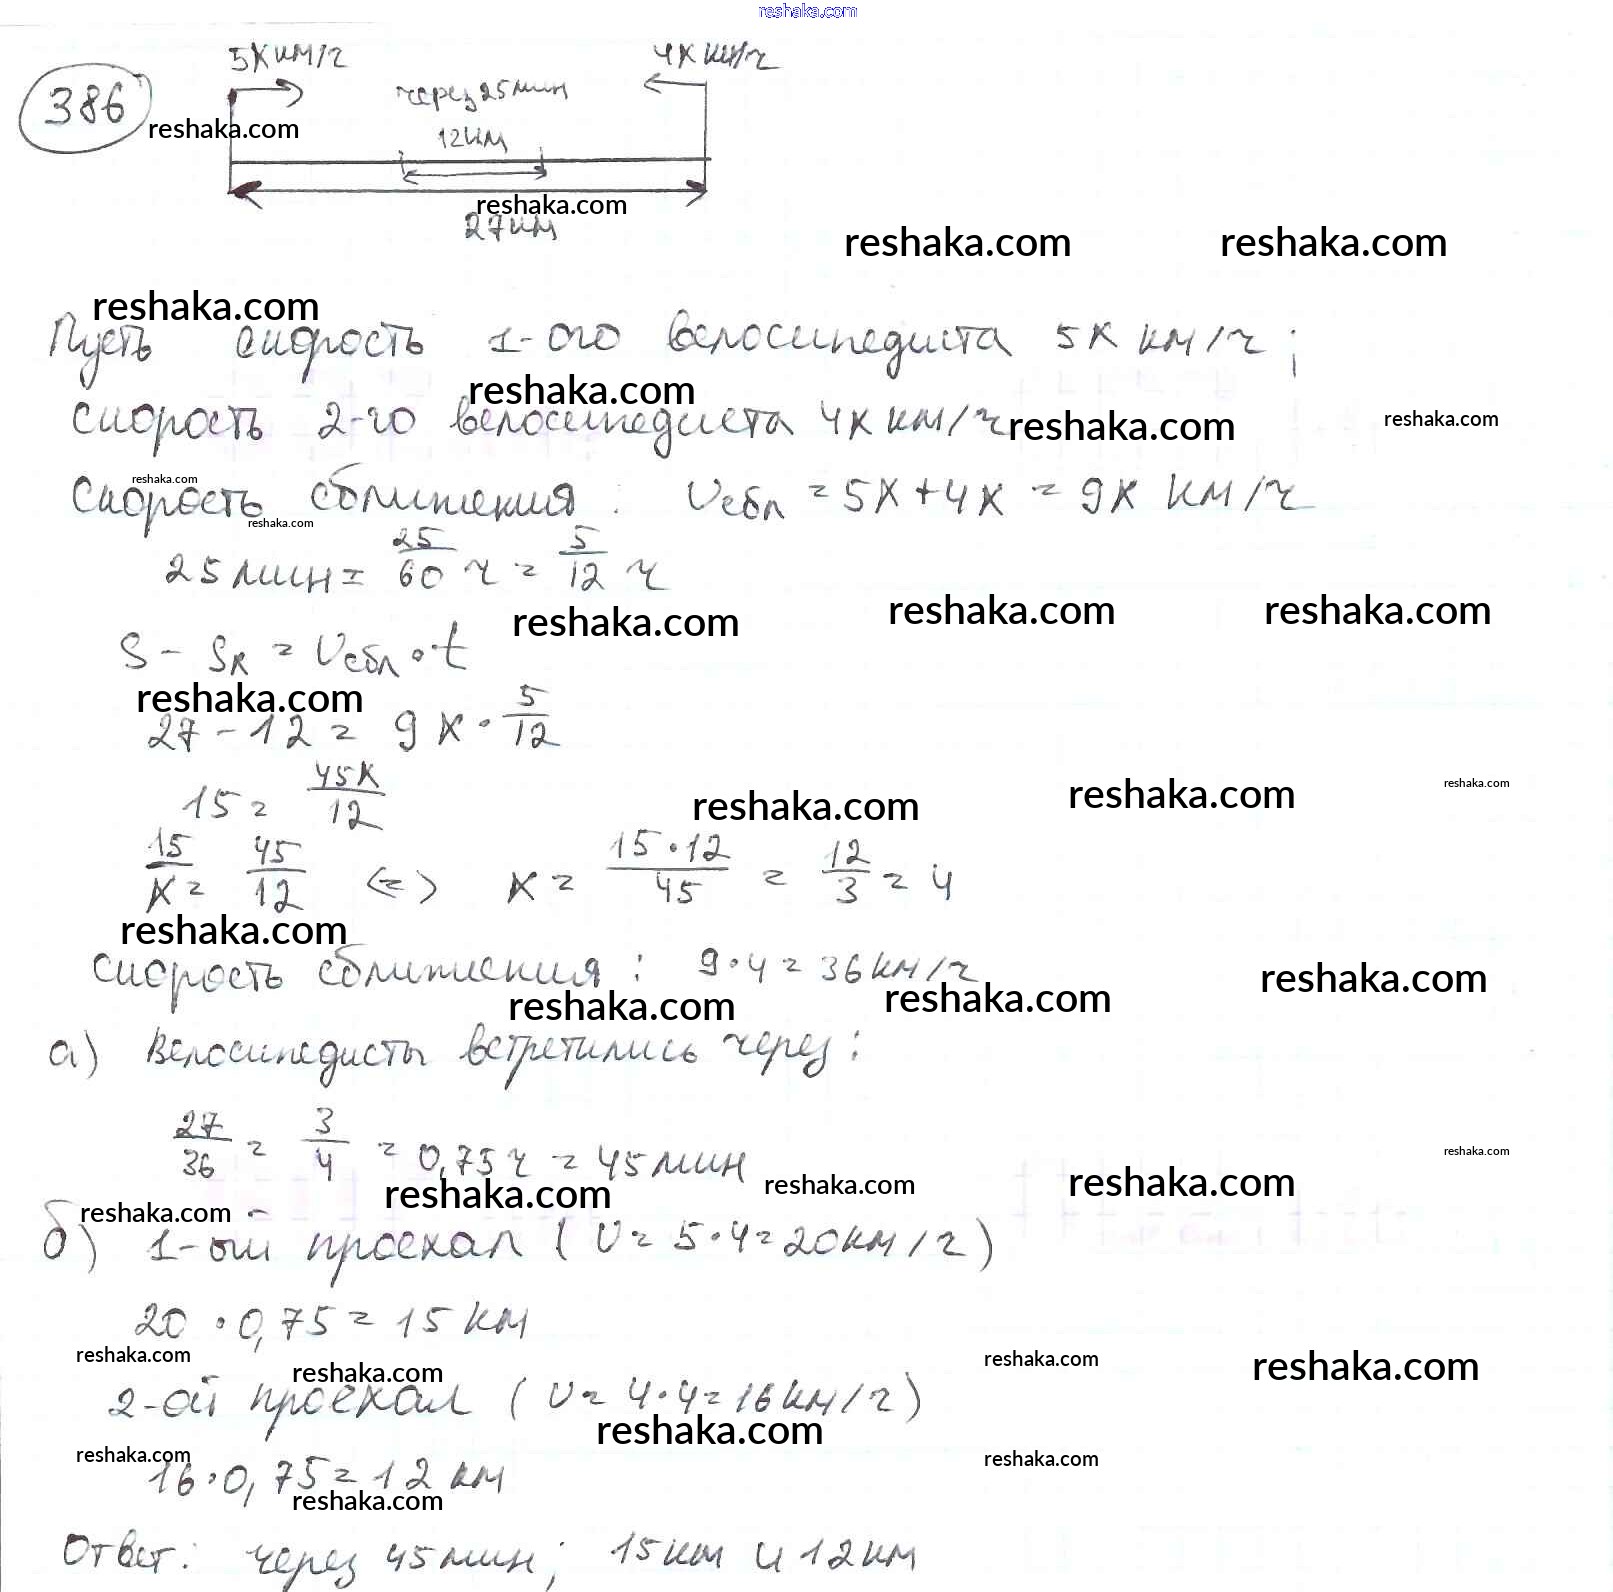 reshaka.com
5x км/ч 4x км/ч
386 через 25 мин
reshaka.com
12 км
reshaka.com
27 км
reshaka.com reshaka.com
reshaka.com
Пусть скорость 1-ого велосипедиста 5x км/ч;
reshaka.com
скорость 2-го велосипедиста 4x км/ч
reshaka.com reshaka.com
reshaka.com
Скорость сближения: Vсбл = 5x + 4x = 9x км/ч
reshaka.com
25 мин = 25/60 ч = 5/12 ч
reshaka.com reshaka.com reshaka.com
S - Sк = Vсбл · t
reshaka.com
27 - 12 = 9x · 5/12
15 = 45x/12
reshaka.com reshaka.com reshaka.com
15/x = 45/12 <=> x = 15·12/45 = 12/3 = 4
reshaka.com
скорость сближения: 9·4 = 36 км/ч
reshaka.com reshaka.com reshaka.com
а) Велосипедисты встретились через:
27/36 = 3/4 = 0,75 ч = 45 мин
reshaka.com
reshaka.com reshaka.com reshaka.com
reshaka.com
б) 1-ый проехал (V = 5·4 = 20 км/ч)
20 · 0,75 = 15 км
reshaka.com reshaka.com reshaka.com reshaka.com
2-ой проехал (V = 4·4 = 16 км/ч)
reshaka.com
reshaka.com reshaka.com
16·0,75 = 12 км
reshaka.com
Ответ: через 45 мин; 15 км и 12 км